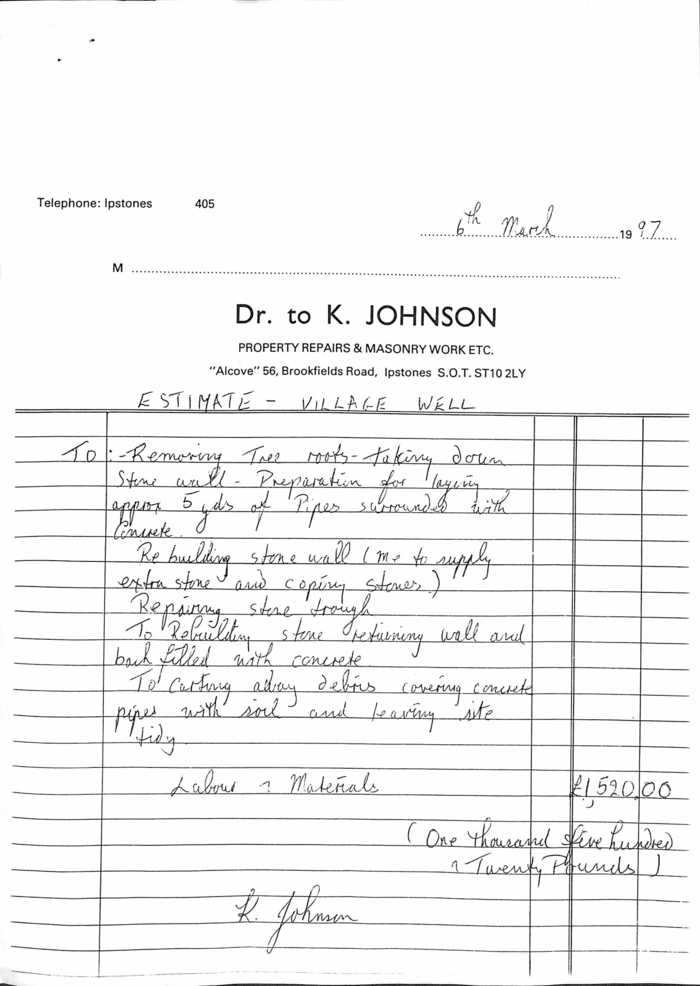 Telephone: Ipstones 405
6th March 1997
M
Dr. to K. JOHNSON
PROPERTY REPAIRS & MASONRY WORK ETC.
"Alcove" 56, Brookfields Road, Ipstones S.O.T. ST10 2LY
ESTIMATE - VILLAGE WELL
To :- Removing Tree roots - taking down
Stone wall - Preparation for laying
approx 5 yds of Pipes surrounded with
Concrete.
Re building stone wall (me to supply
extra stone and coping stones.)
Repairing stone trough
To Rebuilding stone retaining wall and
back filled with concrete
To Carting away debris covering concrete
pipes with soil and leaving site
tidy.
Labour & Materials £1,520.00
(One thousand five hundred
& Twenty Pounds)
K. Johnson